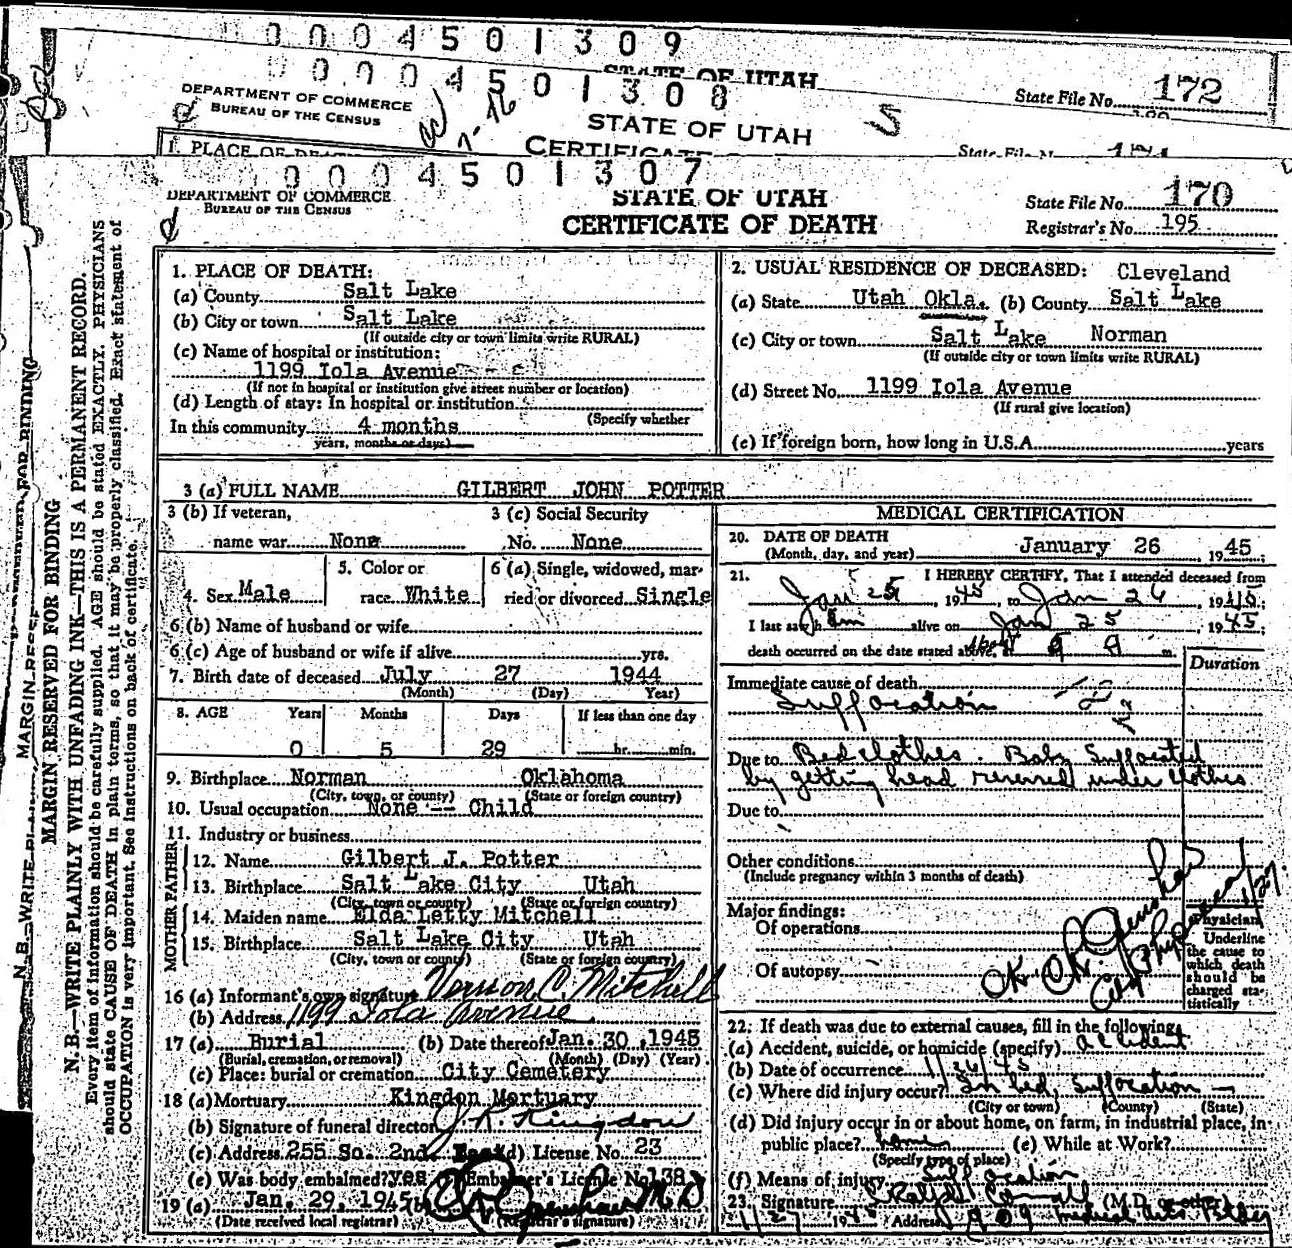 0 0 0 4 5 0 1 3 0 9
STATE OF UTAH
State File No. 172
0 0 0 4 5 0 1 3 0 8
DEPARTMENT OF COMMERCE
BUREAU OF THE CENSUS
STATE OF UTAH
CERTIFICATE
1. PLACE OF DEATH
State File N
0 0 0 4 5 0 1 3 0 7
DEPARTMENT OF COMMERCE
BUREAU OF THE CENSUS
STATE OF UTAH
CERTIFICATE OF DEATH
State File No. 170
Registrar's No. 195
MARGIN RESERVED FOR BINDING
N. B.—WRITE PLAINLY WITH UNFADING INK—THIS IS A PERMANENT RECORD.
Every item of information should be carefully supplied. AGE should be stated EXACTLY. PHYSICIANS
should state CAUSE OF DEATH in plain terms, so that it may be properly classified. Exact statement of
OCCUPATION is very important. See instructions on back of certificate.
1. PLACE OF DEATH:
(a) County Salt Lake
(b) City or town Salt Lake
(If outside city or town limits write RURAL)
(c) Name of hospital or institution:
1199 Iola Avenue
(If not in hospital or institution give street number or location)
(d) Length of stay: In hospital or institution
(Specify whether
In this community 4 months
years, months or days)
2. USUAL RESIDENCE OF DECEASED: Cleveland
(a) State Utah Okla. (b) County Salt Lake
(c) City or town Salt Lake Norman
(If outside city or town limits write RURAL)
(d) Street No. 1199 Iola Avenue
(If rural give location)
(e) If foreign born, how long in U.S.A. years
3 (a) FULL NAME GILBERT JOHN POTTER
3 (b) If veteran,
name war None
3 (c) Social Security
No. None
4. Sex Male
5. Color or
race White
6 (a) Single, widowed, mar-
ried or divorced Single
6 (b) Name of husband or wife
6 (c) Age of husband or wife if alive yrs.
7. Birth date of deceased July 27 1944
(Month) (Day) Year)
8. AGE Years Months Days If less than one day
0 5 29 hr. min.
9. Birthplace Norman Oklahoma
(City, town, or county) (State or foreign country)
10. Usual occupation None -- Child
11. Industry or business
FATHER
12. Name Gilbert J. Potter
13. Birthplace Salt Lake City Utah
(City, town or county) (State or foreign country)
MOTHER
14. Maiden name Elda Letty Mitchell
15. Birthplace Salt Lake City Utah
(City, town or county) (State or foreign country)
16 (a) Informant's own signature Vernon C. Mitchell
(b) Address 1199 Iola Avenue
17 (a) Burial (b) Date thereof Jan. 30, 1945
(Burial, cremation, or removal) (Month) (Day) (Year)
(c) Place: burial or cremation City Cemetery
18 (a) Mortuary Kingdon Mortuary
(b) Signature of funeral director J. R. Kingdon
(c) Address 255 So. 2nd. East (d) License No. 23
(e) Was body embalmed? yes Embalmer's License No. 138
19 (a) Jan. 29, 1945 (b) M D
(Date received local registrar) (Registrar's signature)
MEDICAL CERTIFICATION
20. DATE OF DEATH
(Month, day, and year) January 26, 1945;
21. I HEREBY CERTIFY, That I attended deceased from
Jan 25, 1945, to Jan 26, 1945;
I last saw him alive on Jan 25, 1945;
death occurred on the date stated above, at m.
Duration
Immediate cause of death
Suffocation
Due to Bed clothes. Baby Suffocated
by getting head under clothes
Due to
Other conditions
(Include pregnancy within 3 months of death)
Major findings:
Of operations
Of autopsy
OK
City Physician 1/27
Physician
Underline
the cause to
which death
should be
charged sta-
tistically
22. If death was due to external causes, fill in the following
(a) Accident, suicide, or homicide (specify) accident
(b) Date of occurrence 1/26/45
(c) Where did injury occur? In bed, suffocation
(City or town) (County) (State)
(d) Did injury occur in or about home, on farm, in industrial place, in
public place? home (e) While at Work?
(Specify type of place)
(f) Means of injury Suffocation
23. Signature (M.D.
1/27 1945 Address 909 Medical Arts Bldg